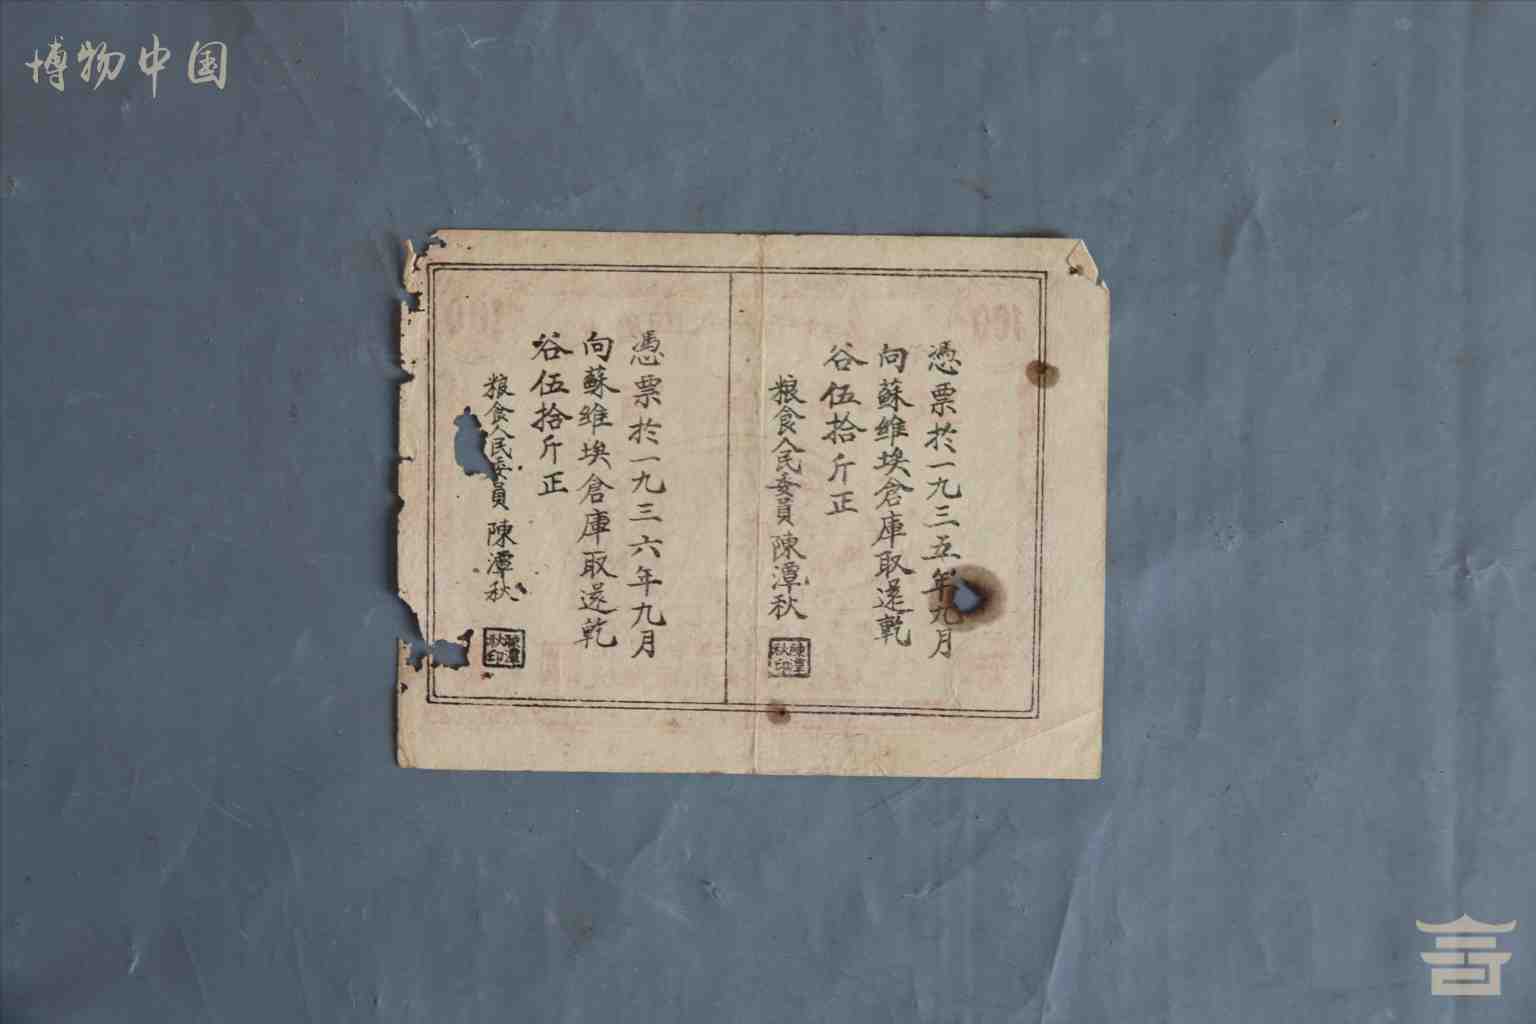 博物中国
憑票於一九三五年九月
向蘇维埃倉庫取還乾
谷伍拾斤正
粮食人民委員 陳潭秋
陳潭秋印
憑票於一九三六年九月
向蘇维埃倉庫取還乾
谷伍拾斤正
粮食人民委員 陳潭秋
陳潭秋印
100
100